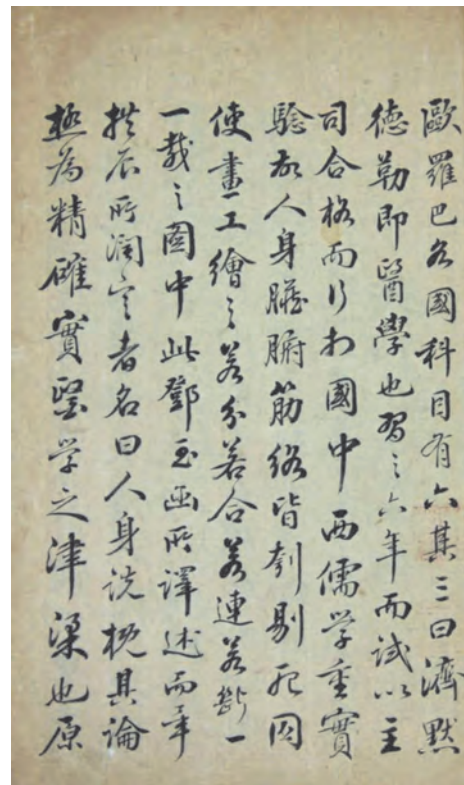 歐羅巴各國科目有六其三曰濟默
德勒即醫學也習之六年而試以主
司合格而行扵國中西儒学重實
驗故人身臟腑筋絡皆刳剔死囚
使畫工繪之若分若合若連若斷一
一載之圖中此鄧玉函所譯述而畢
拱辰所潤定者名曰人身說概其論
極為精確實醫学之津梁也原